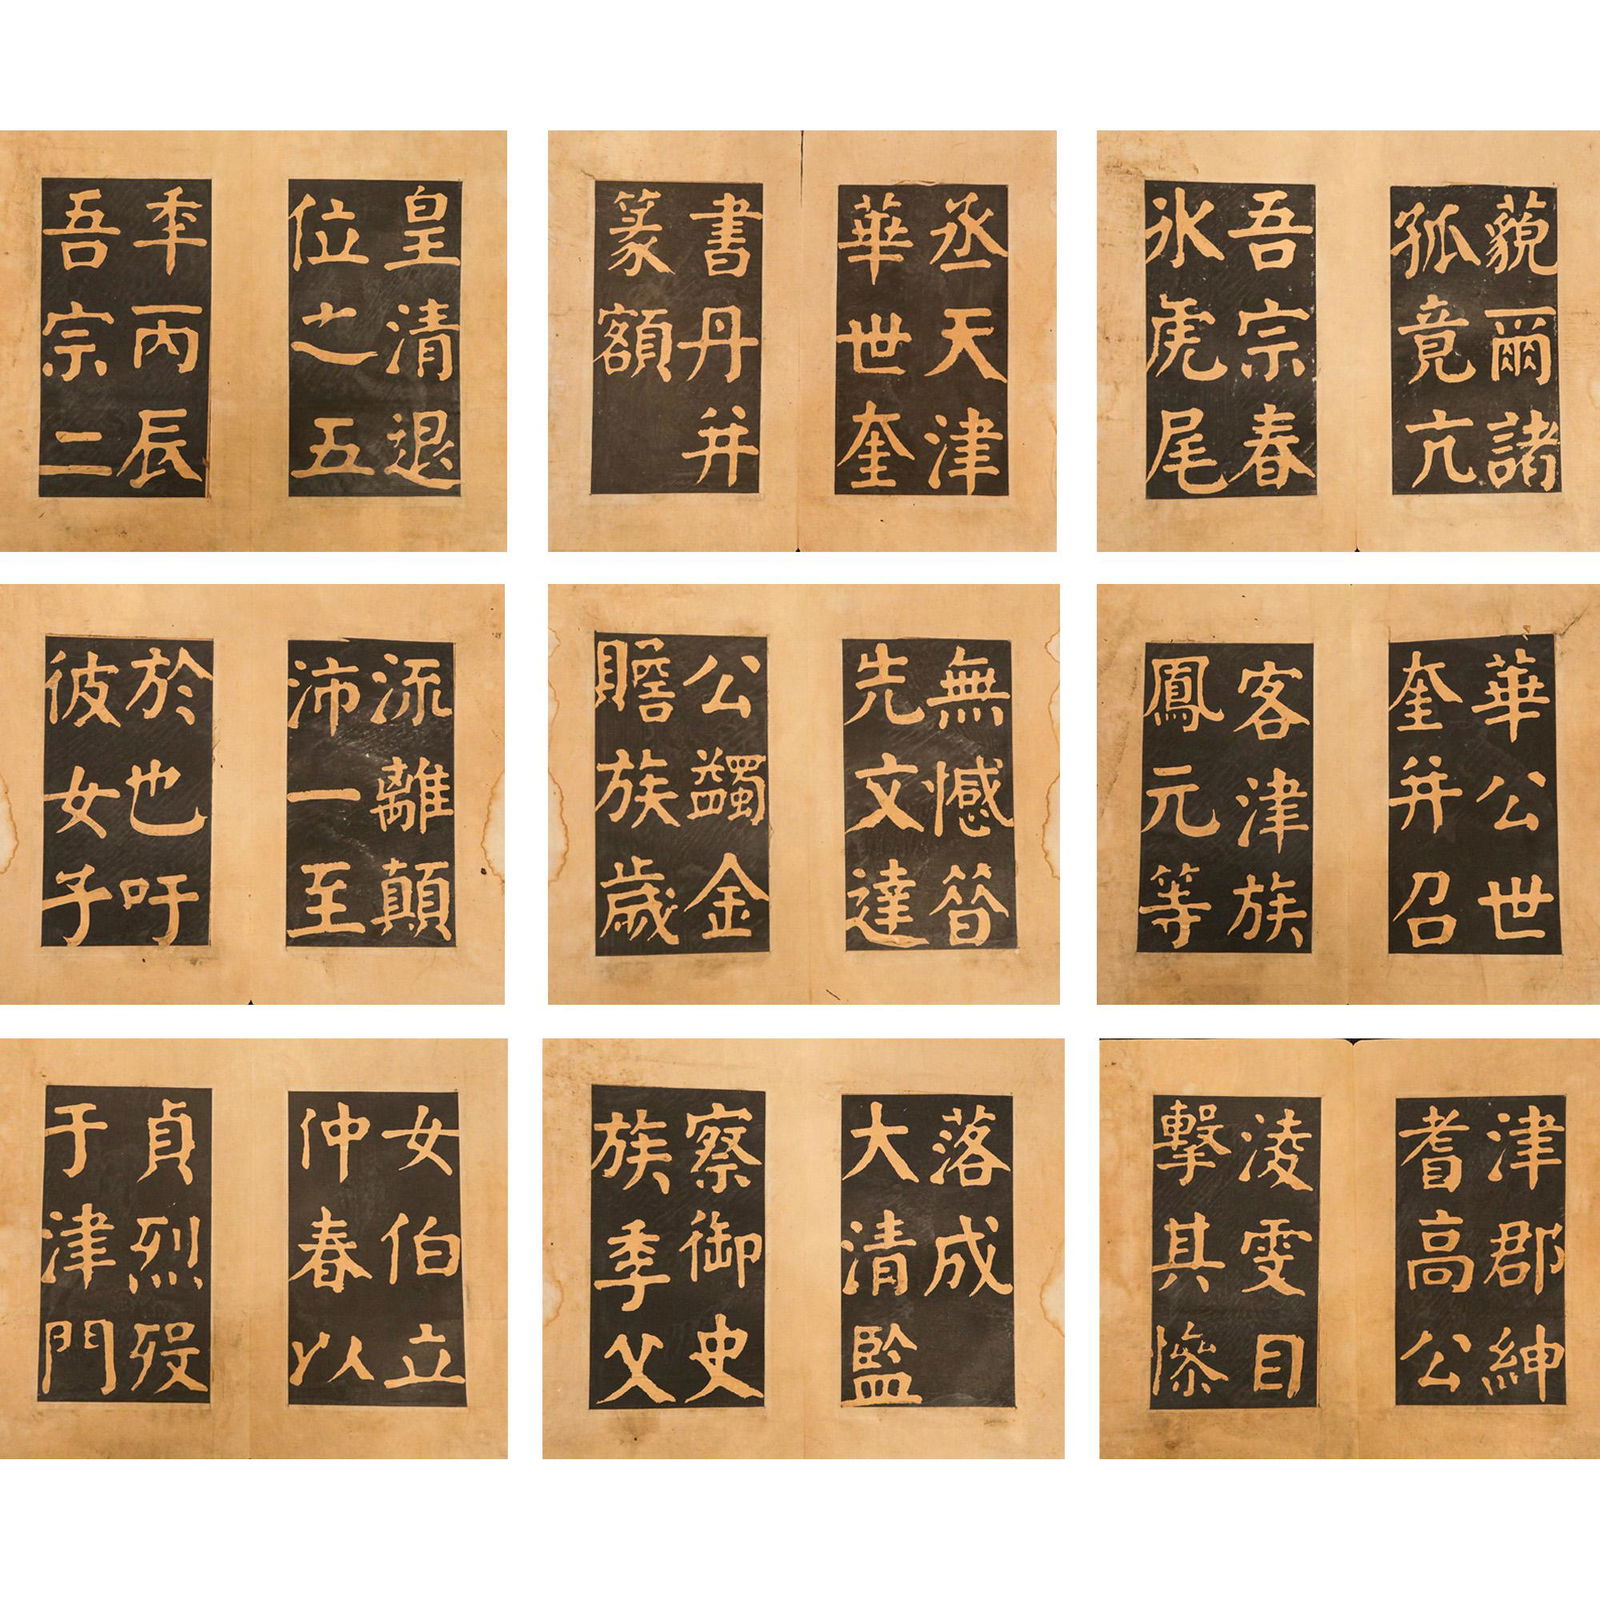 皇清退
位之五
季丙辰
吾宗二
丞天津
華世奎
書丹并
篆額
藐爾諸
孤竟亢
吾宗春
冰虎尾
流離顛
沛一至
於也吁
彼女子
無憾昝
先文達
公蠲金
贍族歲
華公世
奎并召
客津族
鳳元等
女伯立
仲春以
貞烈歿
于津門
落成
大清監
察御史
族季父
津郡紳
耆高公
凌雯目
擊其慘